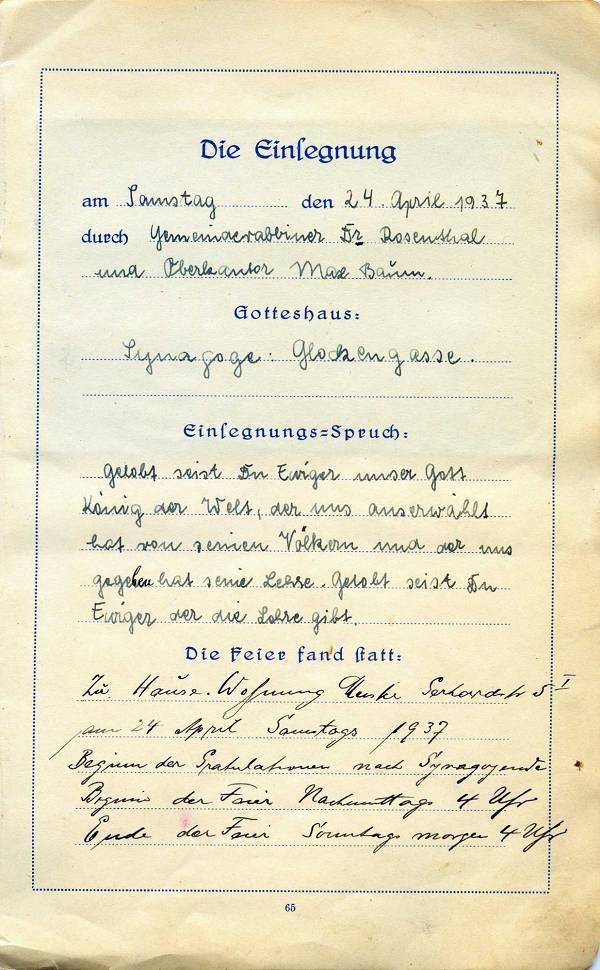 Die Einsegnung
am Samstag den 24. April 1937
durch Gemeinderabbiner Dr Rosenthal
und Oberkantor Max Baum.
Gotteshaus:
Synagoge: Glockengasse.
Einsegnungs=Spruch:
Gelobt seist Du Ewiger unser Gott
König der Welt, der uns auserwählt
hat von seinen Völkern und der uns
gegeben hat seine Lehre. Gelobt seist Du
Ewiger der die Lehre gibt.
Die Feier fand statt:
Zu Hause. Wohnung 5 I
am 24 April Samstags 1937
Beginn der Gratulationen nach Synagogende
Beginn der Feier Nachmittags 4 Uhr
Ende der Feier Sonntags morgen 4 Uhr
65